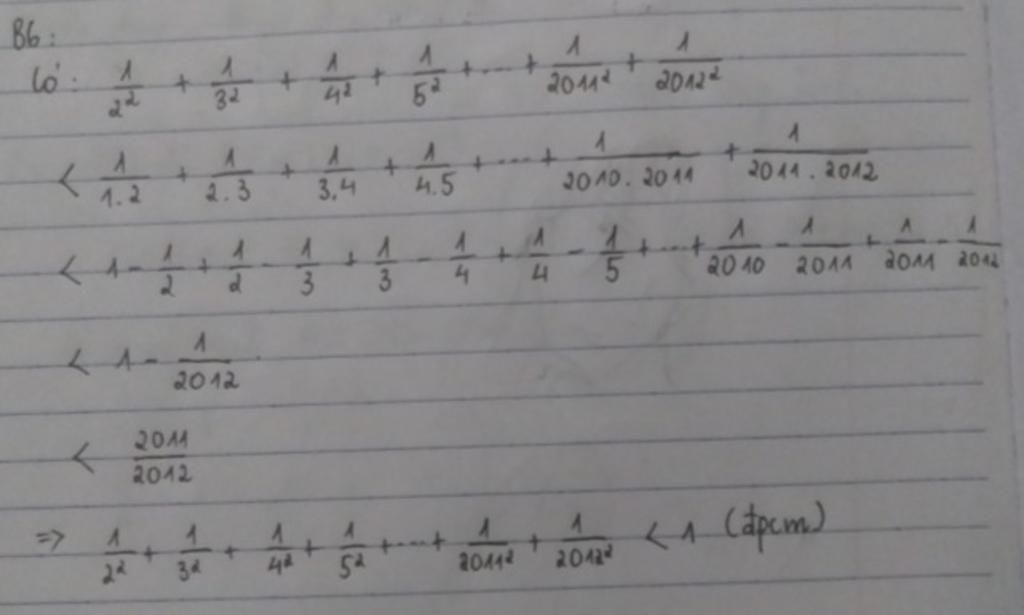 B6:
Có: 1/2² + 1/3² + 1/4² + 1/5² + ... + 1/2011² + 1/2012²
< 1/1.2 + 1/2.3 + 1/3.4 + 1/4.5 + ... + 1/2010.2011 + 1/2011.2012
< 1 - 1/2 + 1/2 - 1/3 + 1/3 - 1/4 + 1/4 - 1/5 + ... + 1/2010 - 1/2011 + 1/2011 - 1/2012
< 1 - 1/2012
< 2011/2012
=> 1/2² + 1/3² + 1/4² + 1/5² + ... + 1/2011² + 1/2012² < 1 (đpcm)